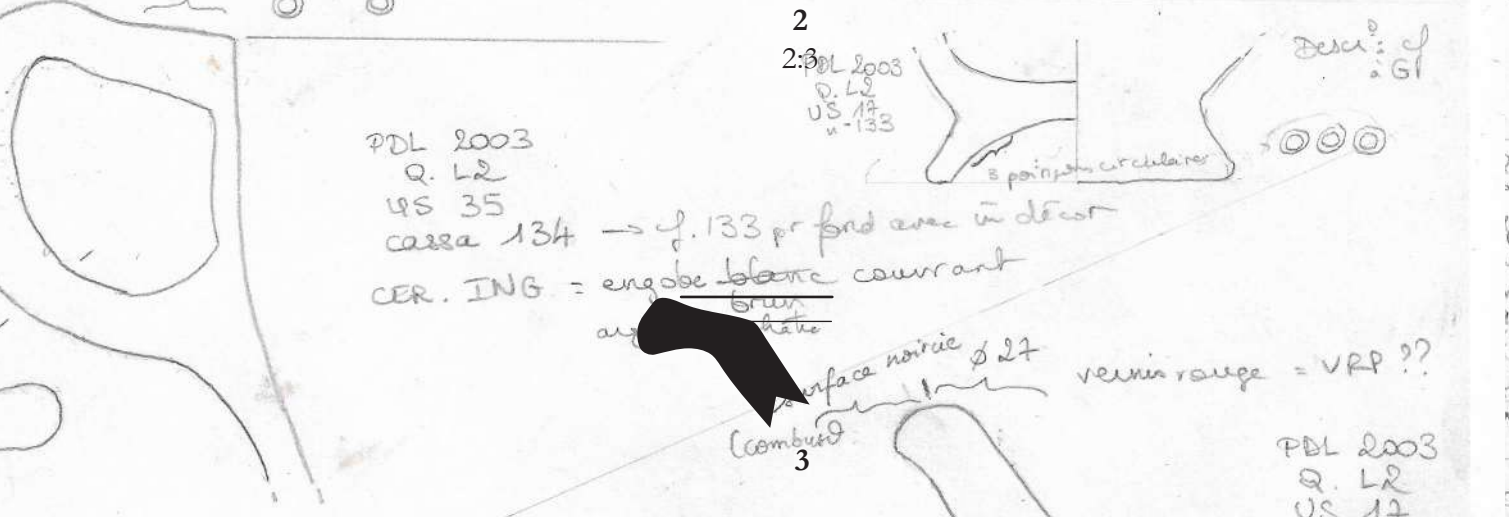 2
2:3
PDL 2003
Q. L2
US 17
n-133
3 poinçons circulaires
à G1
PDL 2003
Q. L2
US 35
cassa 134 → cf. 133 pr fond avec m̄ décor
CER. ING = engobe blanc couvrant
brun
surface noircie ø 27
(combust)
vernis rouge = VRP ??
3
PDL 2003
Q. L2
US 17